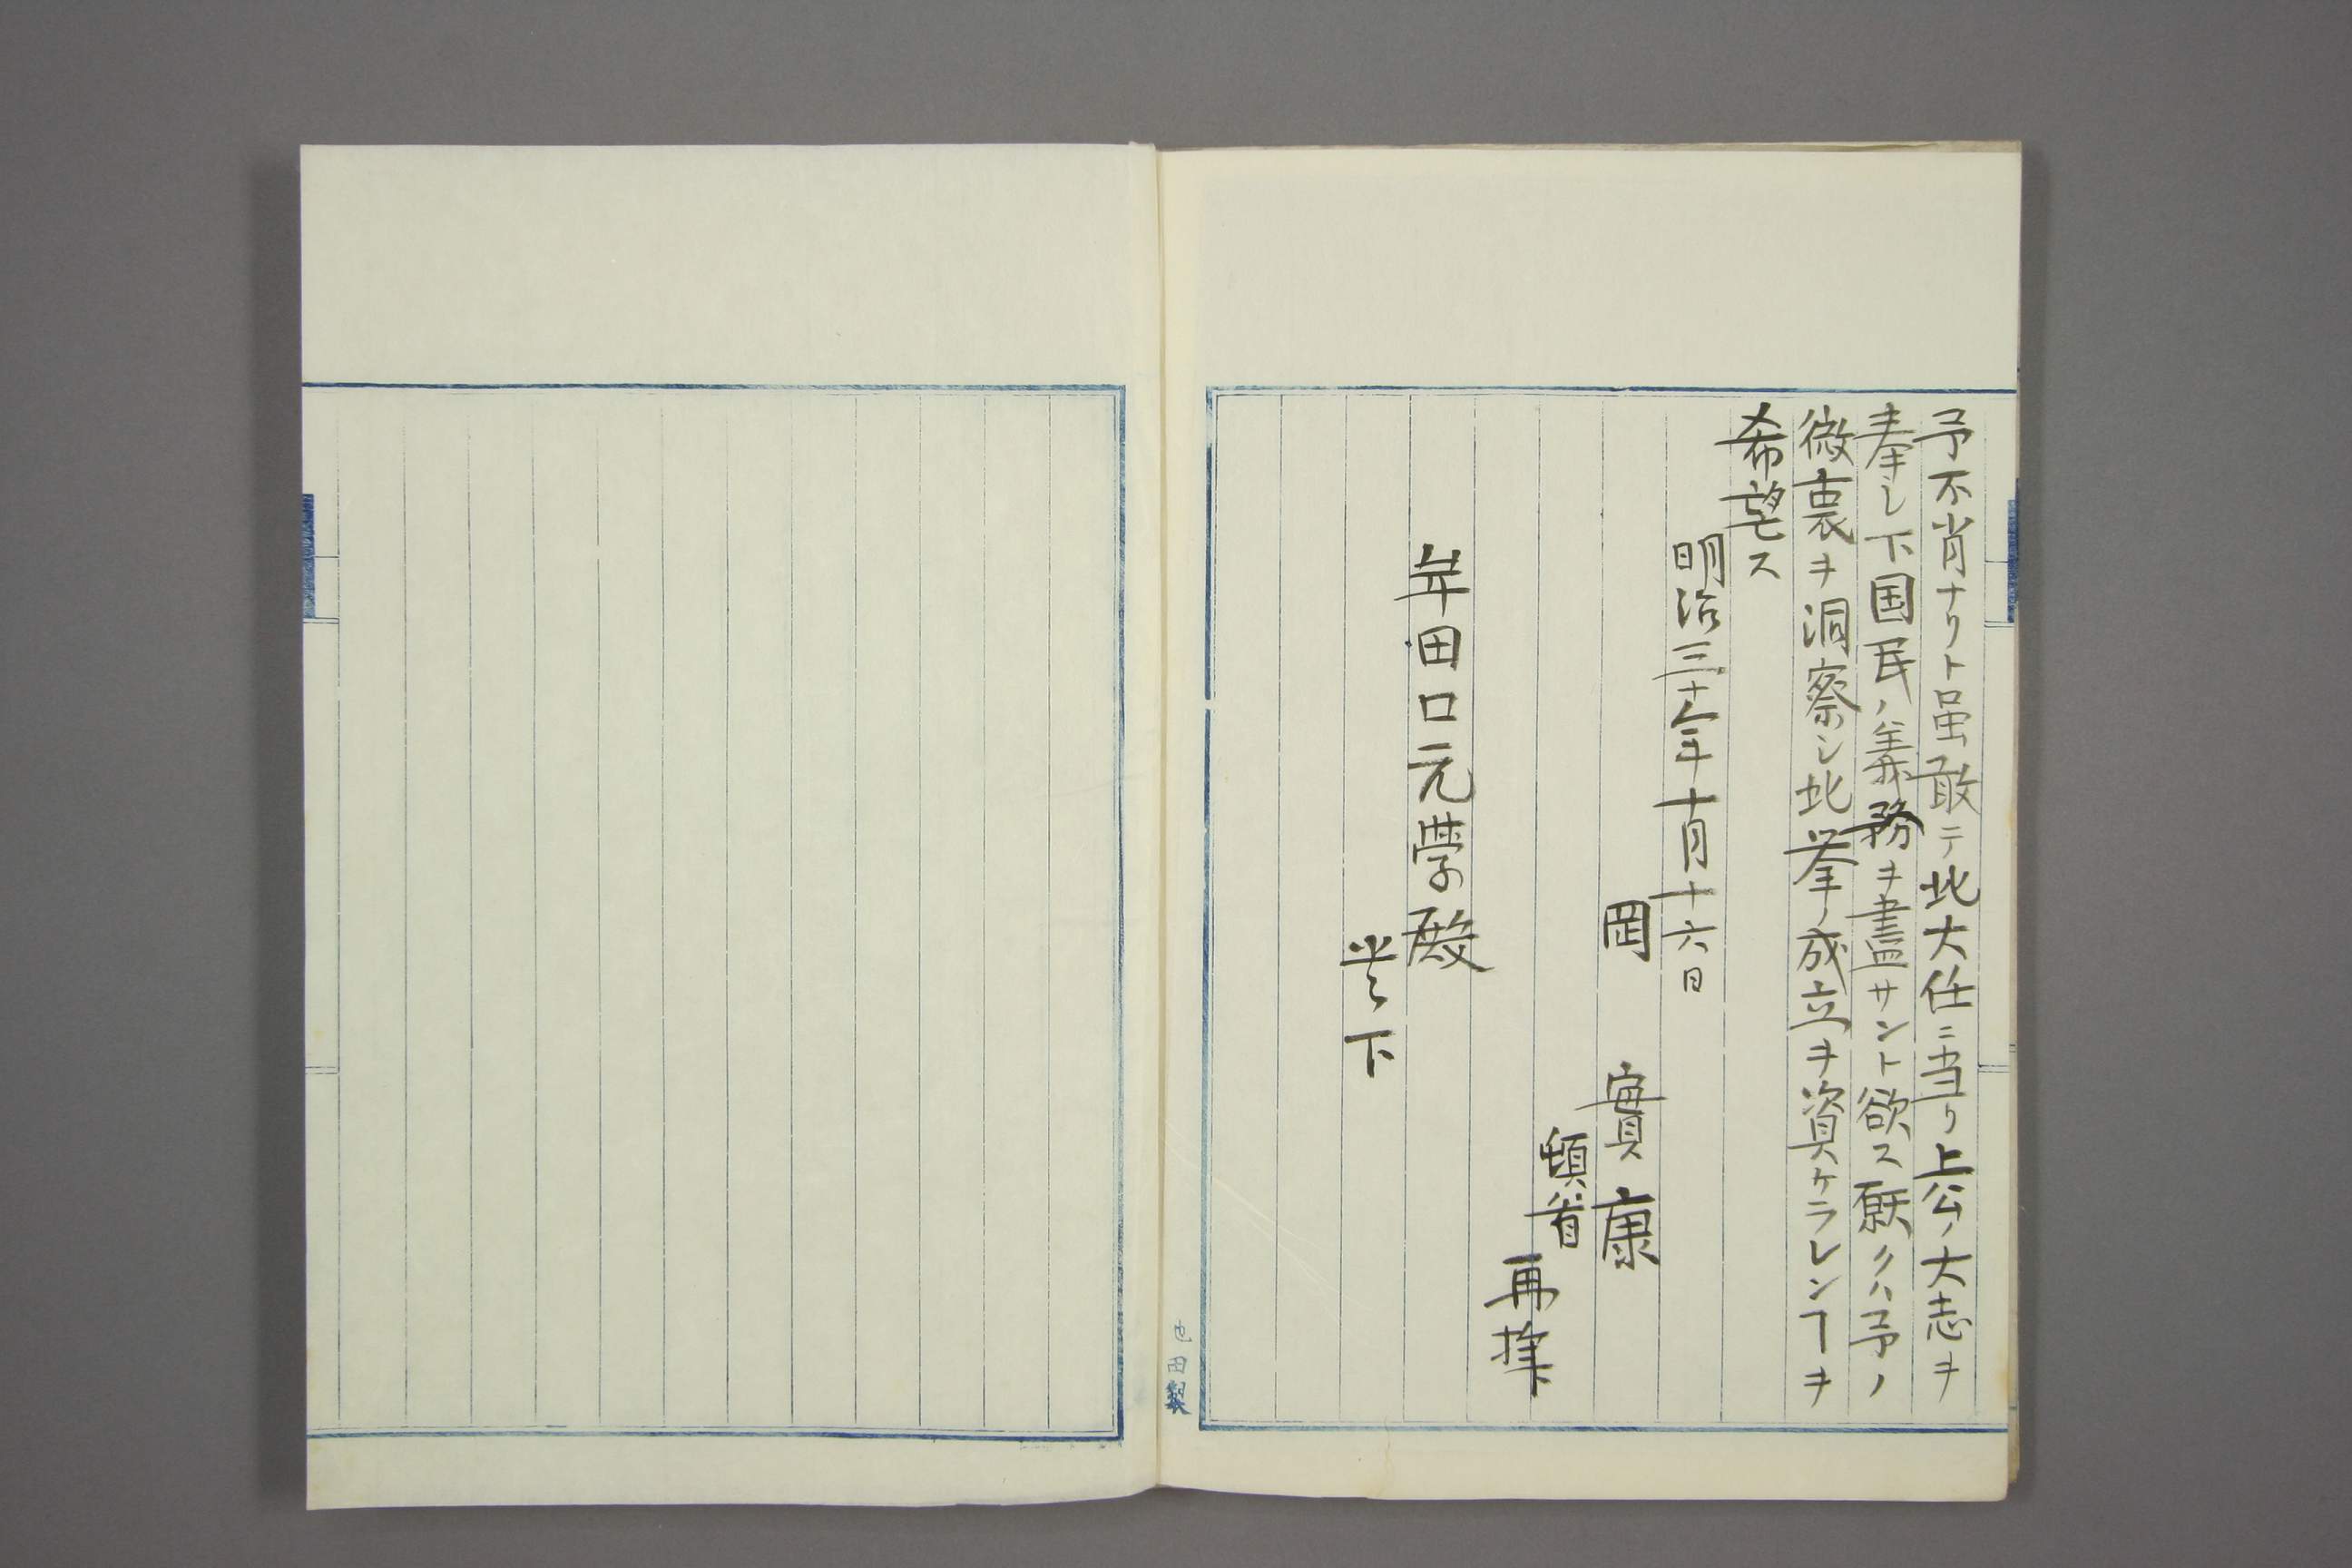 予不肖ナリト虽敢テ此大任ニ当リ上公ノ大志ヲ
奉シ下国民ノ義務ヲ盡サント欲ス願クハ予ノ
微衷ヲ洞察シ此挙ノ成立ヲ資ケラレンヿヲ
希望ス
明治三十年十月十六日
岡 實康
頓首
再拝
牟田口元學殿
下
田製